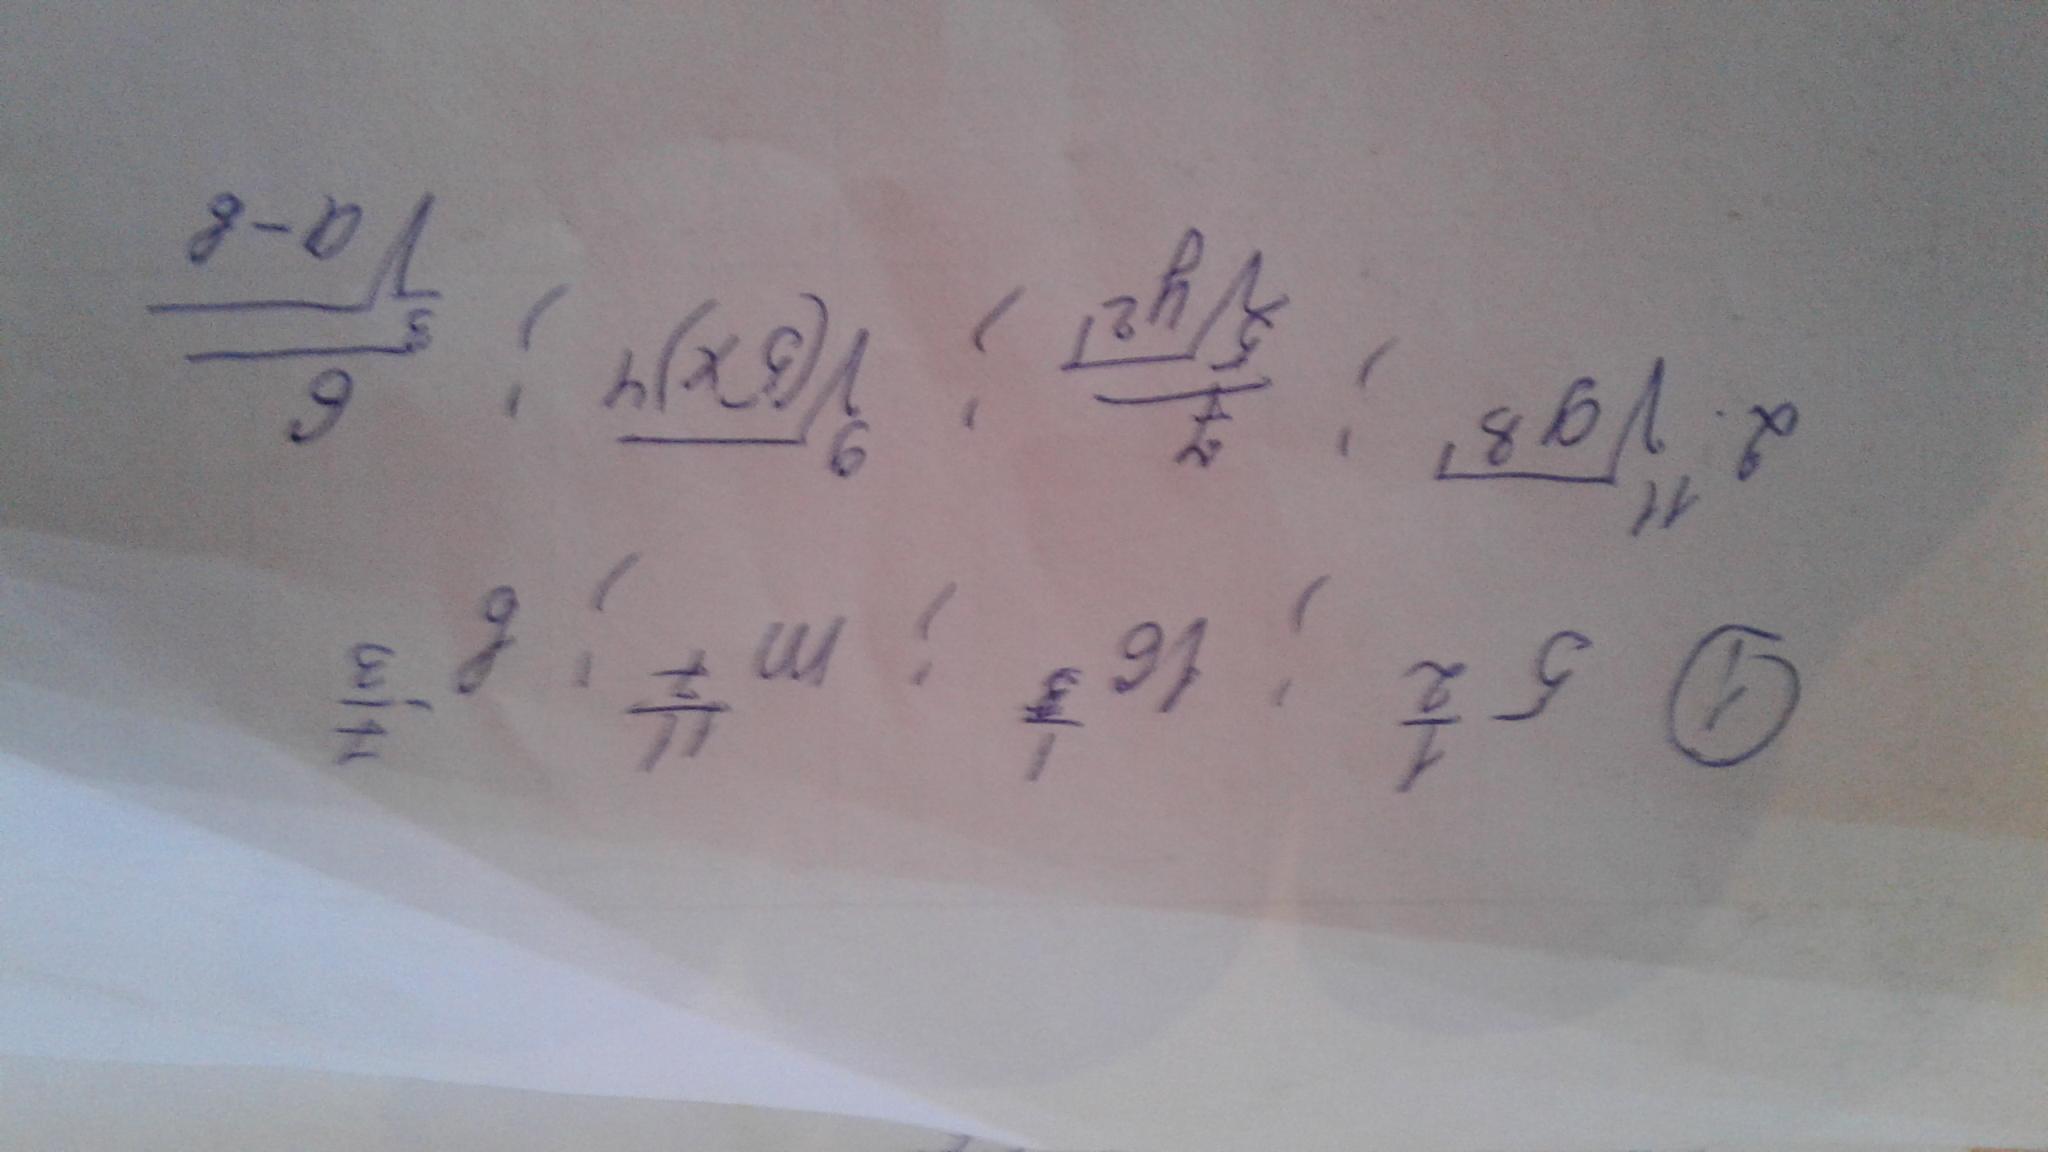 ① 5^{\frac{1}{2}} ; 16^{\frac{1}{3}} ; m^{\frac{11}{7}} ; b^{-\frac{7}{3}}
2. \sqrt[11]{a^3} ; \frac{7}{\sqrt[5]{y^2}} ; \sqrt[9]{(5x)^4} ; \frac{6}{\sqrt[3]{a-b}}